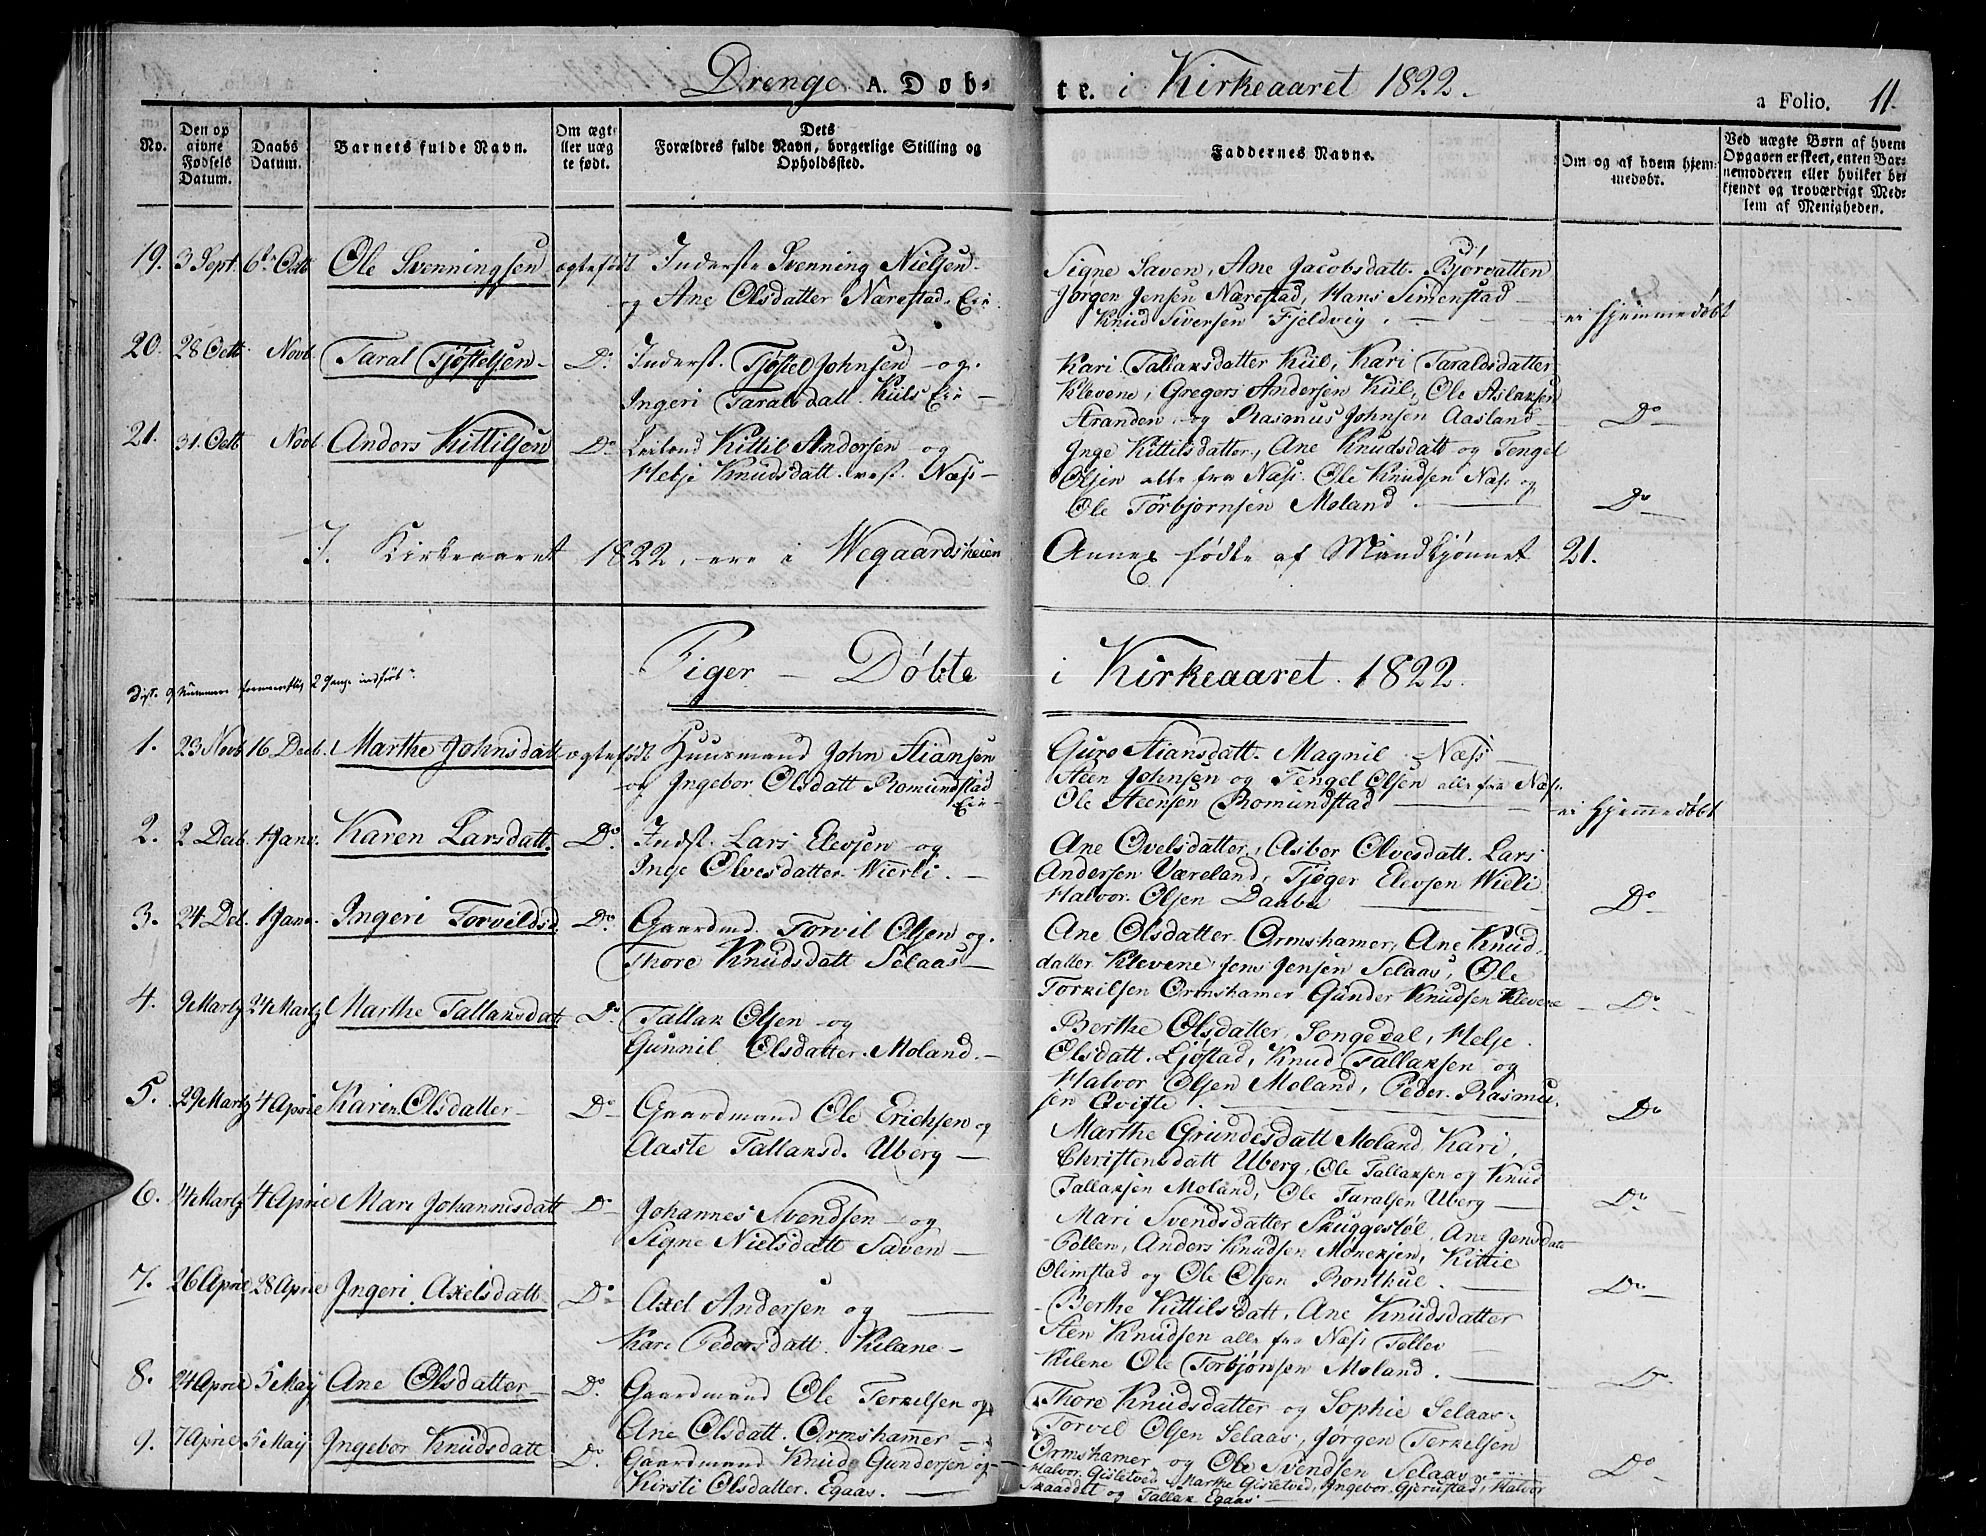 Drenge A. Døb-
te. i Kirkeaaret 1822.
a Folio. 11.
No.
Den op
givne
Fødsels
Datum.
Daabs
Datum.
Barnets fulde Navn.
Om ægt-
eller uæg
te født.
Dets
Forældres fulde Navn, borgerlige Stilling og
Opholdssted.
Faddernes Navne.
Om og af hvem hjem-
medøbt.
Ved uægte Børn af hvem
Opgaven er skeet, enten Bar-
nemoderen eller hvilket be-
kjendt og troværdigt Med-
lem af Menigheden.
19. 3 Sept. 6te Octb Ole Svenningsen ægtefødt Inderste Svenning Nielsen
og Ane Olsdatter Nærestad. Eie.
Signe Saven, Ane Jacobsdatt. Bjørvatten
Jørgen Jensen Nærestad, Hans Simenstad
Knud Siversen Fjeldvig.
ei Hjemmedøbt
20. 28 Octb Novb. Taral Tjøstelsen Do. Inderst. Tjøstel Johnsen og
Ingeri Taralsdatt. Kiils Eie
Kari Tallaksdatter Kiil, Kari Taraldsdatter
Klevene, Gregers Andersen Kiil, Ole Aslaksen
Stranden og Rasmus Johnsen Aasland
Do
21. 31. Octb Novb Anders Kittilsen Do. Leilend Kittil Andersen og
Helje Knudsdatt. vest. Næs
Inge Kittilsdatter, Ane Knudsdatt og Tengel
Olsen alle fra Næs. Ole Knudsen Næs og
Ole Torbjørnsen Moland.
Do
I. Kirkeaaret 1822, ere i Wegaardsheien
Annex fødte af Mandkjønnet 21.
Piger Døbte
i Kirkeaaret. 1822.
2 Gange indført.
1. 23 Novb 16 Decb. Marthe Johnsdatt ægtefødt Huusmand John Stiansen
og Ingebor Olsdatt Romundstad
Eie
Guro Stiansdatt. Magnil Næs
Steen Johnsen og Tengel Olsen alle fra Næs.
Ole Steensen Romundstad
ei Hjemmedøbt
2. 2 Decb. 1 Janv. Karen Larsdatt. Do. Indst. Lars Elevsen og
Inge Olvesdatter Wierli.
Ane Ovelsdatter, Asbor Olvesdatt. Lars
Andersen Væreland, Tjøger Elevsen Wieli
Halvor Olsen Daabu
Do
3. 24 Deb. 1 Janv. Ingeri Torvildsd. Do. Gaardmd. Torvil Olsen og
Thore Knudsdatt Selaas
Ane Olsdatter Ormshamer, Ane Knud-
datter Klevene Jens Jensen Selaas, Ole
Torkilsen Ormshamer Gunder Knudsen Klevene
Do.
4. 9 Martz 24 Martz Marthe Tallaksdatt Do Tallak Olsen og
Gunnil Olsdatter Moland.
Berthe Olsdatter Songedal, Helje
Olsdatt. Ljøstad, Knud Tallaksen og
Halvor Olsen Moland, Peder Rasmu-
sen Qvifte.
Do
5. 29 Martz 4 Aprie Karen Olsdatter Do Gaardmand Ole Erichsen og
Aaste Tallaksd. Uberg
Marthe Grundesdatt Moland, Kari
Christensdatt Uberg, Ole Tallaksen og Knud
Tallaksen Moland, Ole Taralsen Uberg
Do.
6. 14 Martz 4 Aprie Mari Johannesdatt Do Johannes Svendsen og
Signe Nielsdatt Saven
Mari Svendsdatter Skuggestøl, Ane Jensdatt
Pollen, Anders Knudsen Monekjen, Kittie
Olimstad og Ole Olsen Ronthul.
Do
7. 26 Aprie 28 Aprie Ingeri Axelsdatt Do Axel Andersen og
Kari Pedersdatt. Kilane
Berthe Kittilsdatt, Ane Knudsdatter
Sten Knudsen alle fra Næs Tellev
Kilene Ole Torbjønsen Moland.
Do
8. 24 Aprie 5 Maij Ane Olsdatter Do. Gaardmand Ole Terkelsen og
Ane Olsdatt. Ormshamer
Thore Knudsdatter og Sophie Selaas.
Torvil Olsen Selaas, Jørgen Terkelsen
Ormshamer og Ole Svendsen Selaas
Do
9. 7 Aprie 5 Maij Ingebor Knudsdatt Do. Gaardmand Knud Gundersen og
Kirsti Olsdatter. Egaas.
Halvor Gisletved, Marthe Gisletved, Ingebor Gjerustad, Halvor
Skaaddet og Tallak Egaas